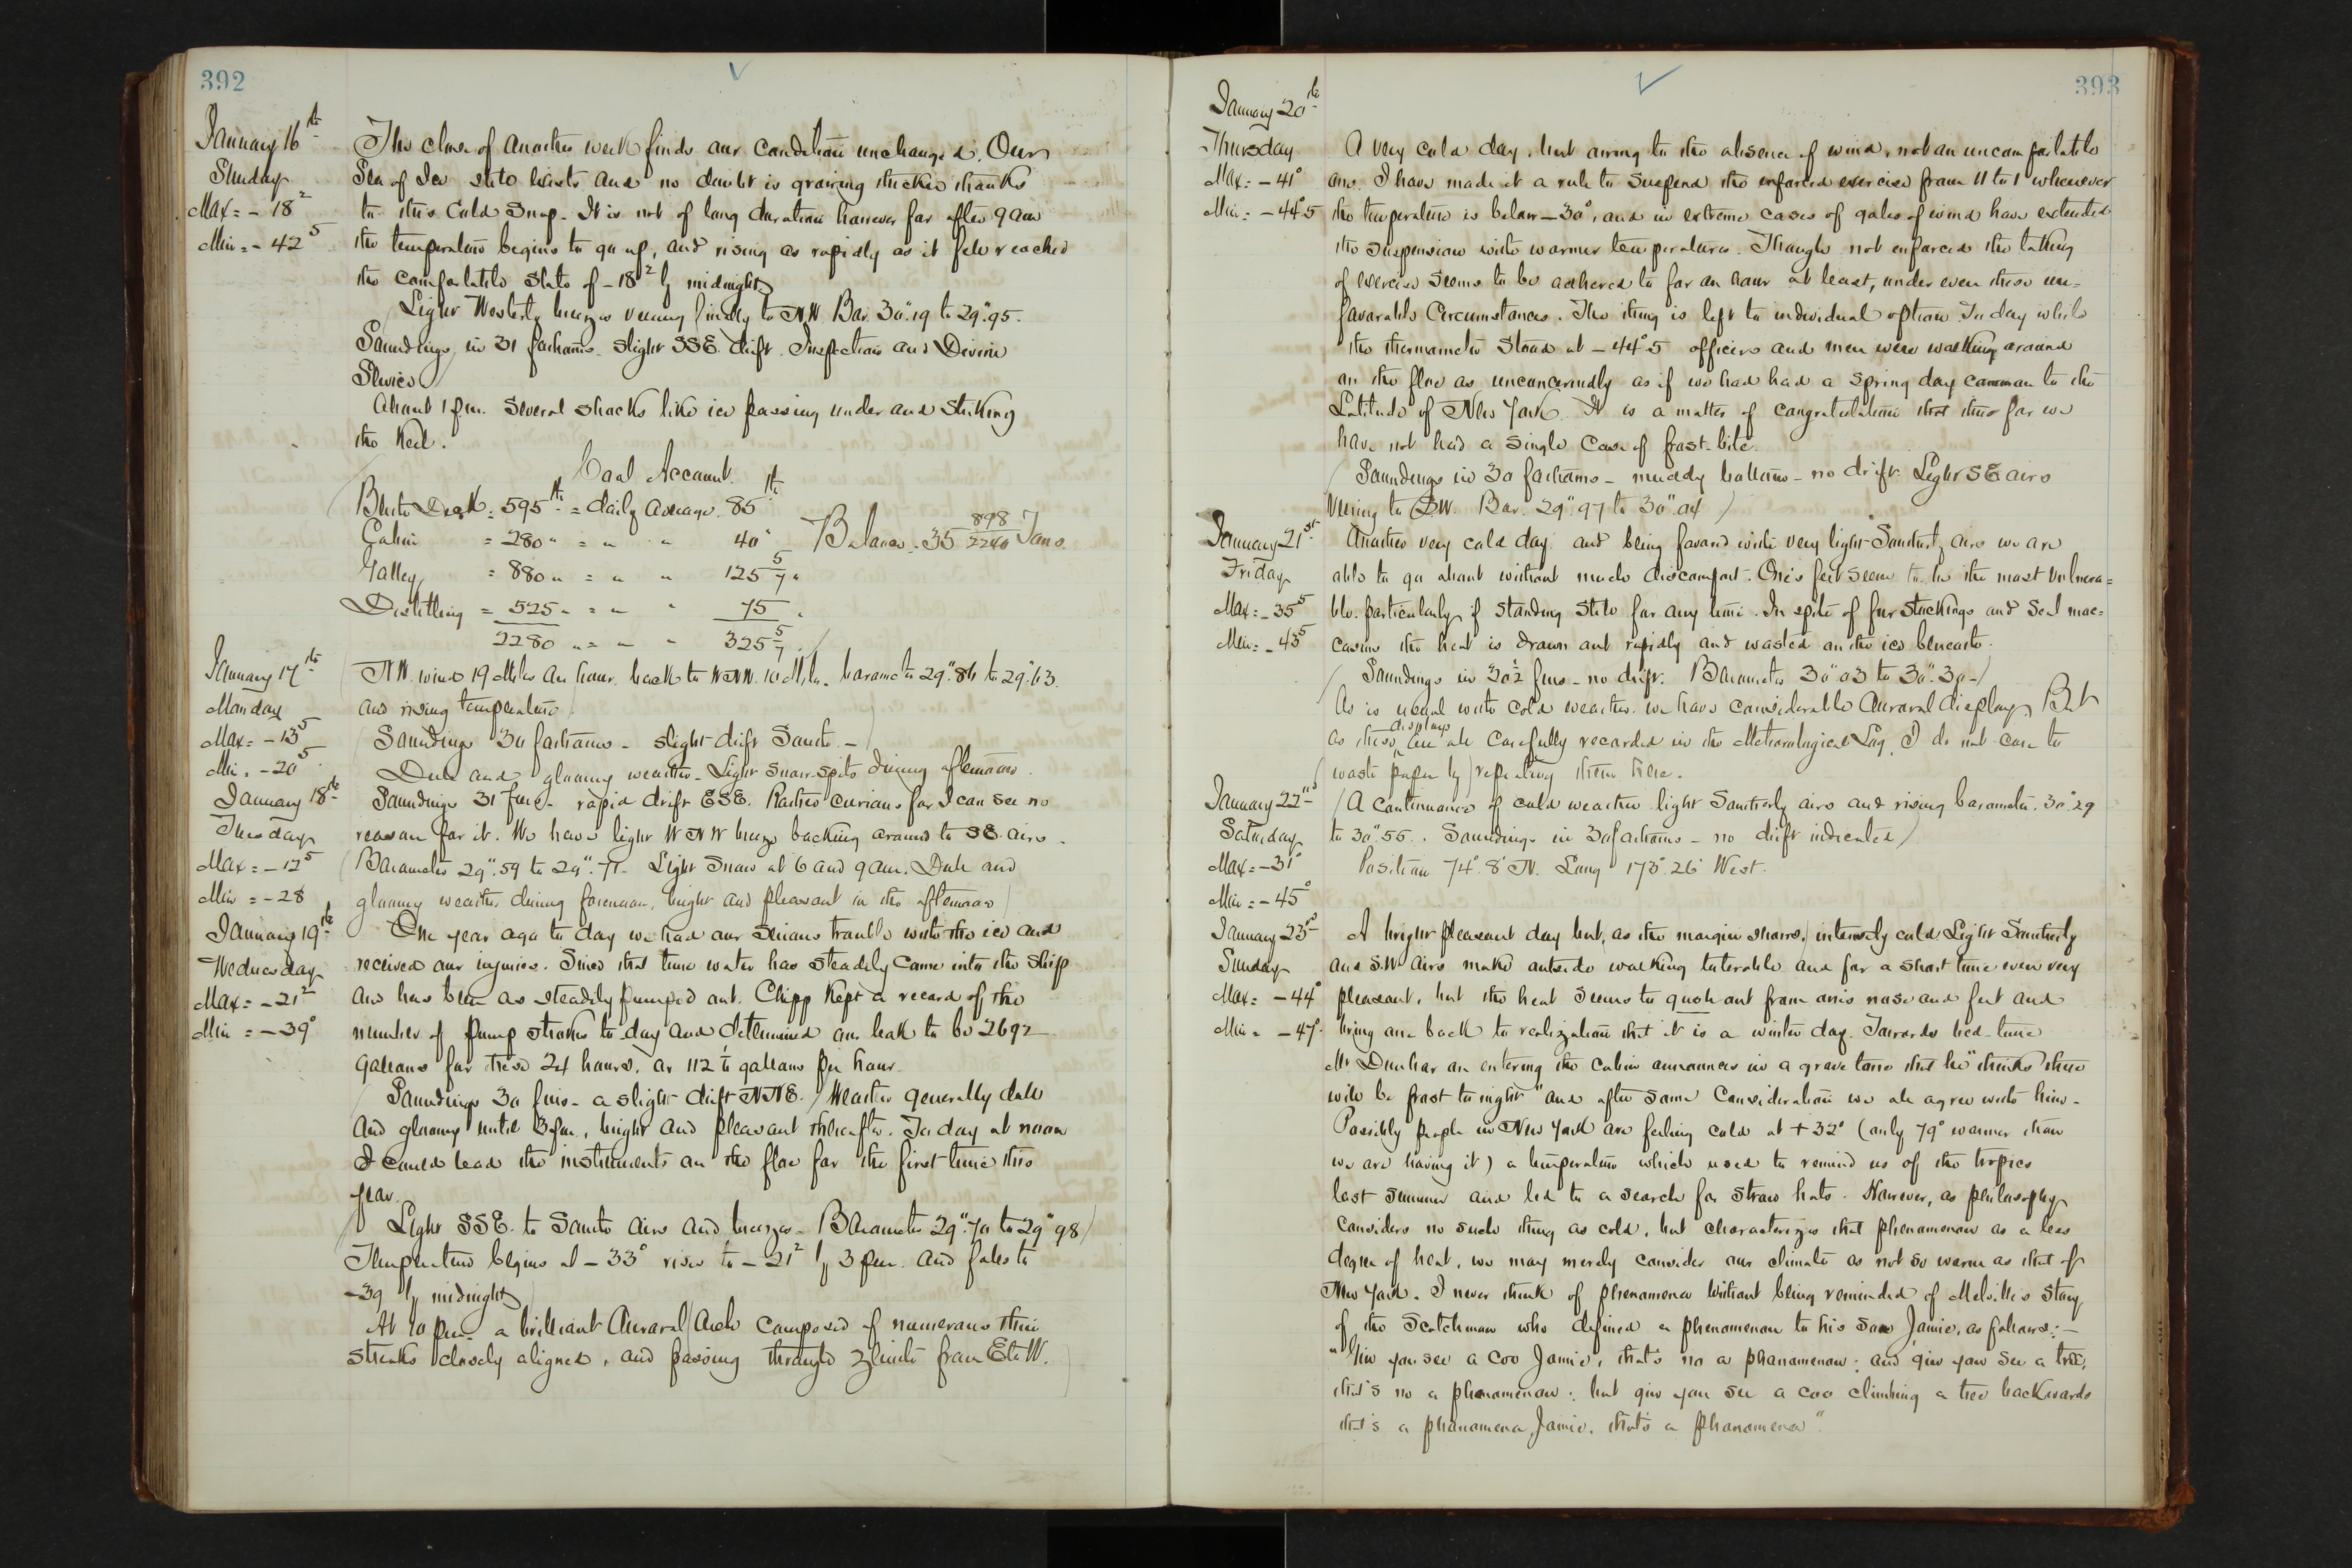 392
January 16th
Sunday
Max = - 18²
Min = - 42⁵
The close of another week finds our condition unchanged. Our
Sea of Ice still lasts and no doubt is growing thicker thanks
to this Cold Snap. It is not of long duration however for after 9 am
the temperature begins to go up, and rising as rapidly as it fell reached
the comfortable state of -18² by midnight
Light Westerly breezes veering finally to N.W. Bar. 30".19 to 29".95.
Soundings in 31 fathoms. Slight SSE. drift. Inspection and Divine
Service
About 1 p.m. Several shocks like ice passing under and striking
the keel.
Coal Account.
Berth Deck = 595 lb = daily average. 85 lb
Cabin = 280 " = " " 40 "
Balance = 35 898/2240 Tons.
Galley = 880 " = " " 125 5/7 "
Distilling = 525 " = " " 75 "
2280 " = " " 325 5/7 "
January 17th
Monday
Max = - 13⁵
Min. - 20⁵
NW. wind 19 Miles an hour. back to WNW. 10 Miles. barometer 29".86 to 29".63.
and rising temperature
Soundings 30 fathoms - slight drift South. -
Dull and gloomy weather - Light snow spits during afternoon.
January 18th
Tuesday
Max = - 12⁵
Min = - 28
Soundings 31 fms - rapid drift ESE. Rather curious for I can see no
reason for it. We have light WNW breeze backing around to SE. airs.
Barometer 29".59 to 29".71 - Light Snow at 6 and 9 am. Dull and
gloomy weather during forenoon, bright and pleasant in the afternoon
January 19th
Wednesday
Max = - 21²
Min = - 39°
One year ago to day we had our serious trouble with the ice and
received our injuries. Since that time water has steadily come into the ship
and has been as steadily pumped out. Chipp kept a record of the
number of pump strokes to-day and determined our leak to be 2692
gallons for these 24 hours, or 112 1/6 gallons per hour.
Soundings 30 fms - a slight drift NNE. Weather generally dull
And gloomy until 3 pm, bright and pleasant thereafter. To day at noon
I could read the instruments on the floe for the first time this
year.
Light SSE. to South airs and breezes - Barometer 29".70 to 29".98
Temperature begins at - 33° rises to - 21² by 3 pm. and falls to
-39 by midnight
At 10 pm. a brilliant Auroral Arch composed of numerous thin
streaks closely aligned, and passing through zenith from E to W.
393
January 20th
Thursday
Max = - 41°
Min = - 44°5
A very cold day, but owing to the absence of wind, not an uncomfortable
one. I have made it a rule to suspend the enforced exercise from 11 to 1 whenever
the temperature is below - 30°, and in extreme cases of gales of wind have extended
the suspension with warmer temperatures. Though not enforced the taking
of exercise seems to be adhered to for an hour at least, under even these un=
favorable Circumstances. The thing is left to individual option. To day while
the thermometer stood at - 44°5 officers and men were walking around
on the floe as unconcernedly as if we had had a spring day common to the
Latitude of New York. It is a matter of congratulation that thus far we
have not had a single case of frost-bite.
Soundings in 30 fathoms - muddy bottom - no drift. Light SE airs
Veering to SW. Bar. 29".97 to 30".04
January 21st
Friday
Max = - 35⁵
Min = - 43⁵
Another very cold day, and being favored with very light Southerly airs we are
able to go about without much discomfort. One's feet seem to be the most vulnera=
ble. particularly if standing still for any time. In spite of fur stockings and Seal moc=
casins the heat is drawn out rapidly and wasted on the ice beneath.
Soundings in 30½ fms - no drift. Barometer 30".03 to 30".30 -
As is usual with cold weather we have considerable Auroral display. But
as these displays are all carefully recorded in the Meteorological Log, I do not care to
waste paper by repeating them here.
January 22nd
Saturday
Max = - 31°
Min = - 45°
A continuance of cold weather light Southerly airs and rising barometer. 30".29
to 30".55. Soundings in 30 fathoms - no drift indicated
Position 74° 8' N. Long 173° 26' West.
January 23rd
Sunday
Max = - 44°
Min = - 47°
A bright pleasant day but, as the margin shows, intensely cold. Light Southerly
and S.W. airs make outside walking tolerable and for a short time even very
pleasant, but the heat seems to gush out from one's nose and feet and
bring one back to realization that it is a winter day. Towards bed-time
Mr Dunbar on entering the cabin announces in a grave tone that he "thinks there
will be frost to night" and after some Consideration we all agree with him.
Possibly people in New York are feeling cold at + 32° (only 79° warmer than
we are having it) a temperature which used to remind us of the tropics
last summer and led to a search for straw hats. However, as philosophy
considers no such thing as cold, but characterizes that phenomenon as a less
degree of heat, we may merely consider our climate as not so warm as that of
New York. I never think of phenomena without being reminded of Melville's story
of the Scotchman who defined a phenomenon to his son Jamie, as follows: -
"Gin you see a coo Jamie, that's no a phanomenon; and gin you see a tree,
that's no a phanomenon; but gin you see a coo climbing a tree backwards
that's a phanomena, Jamie, that's a phanomena".